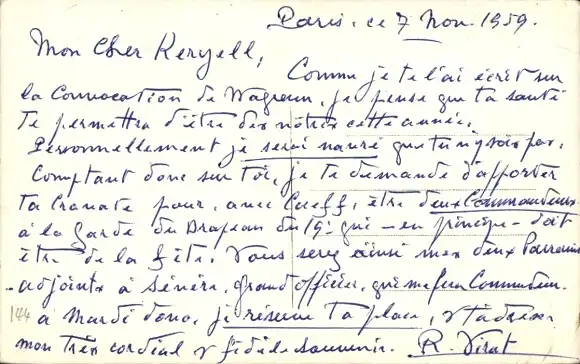 Paris, ce 7 Nov. 1959.
Mon Cher Keryell,
Comme je te l'ai écrit sur
la Convocation de Wagram, je pense que ta santé
te permettra d'être des nôtres cette année.
Personnellement je serai navré que tu n'y sois pas.
Comptant donc sur toi, je te demande d'apporter
ta Cravate pour, avec Cueff, être deux Commandeurs
à la Garde du Drapeau du 19e qui - en principe - doit
être de la fête. Vous serez ainsi mes deux Parrains
adjoints à Sévère, grand officier, qui me fera Commandeur.
144
à Mardi donc, je réserve ta place, et t'adresse
mon très cordial & fidèle souvenir. R. Virat